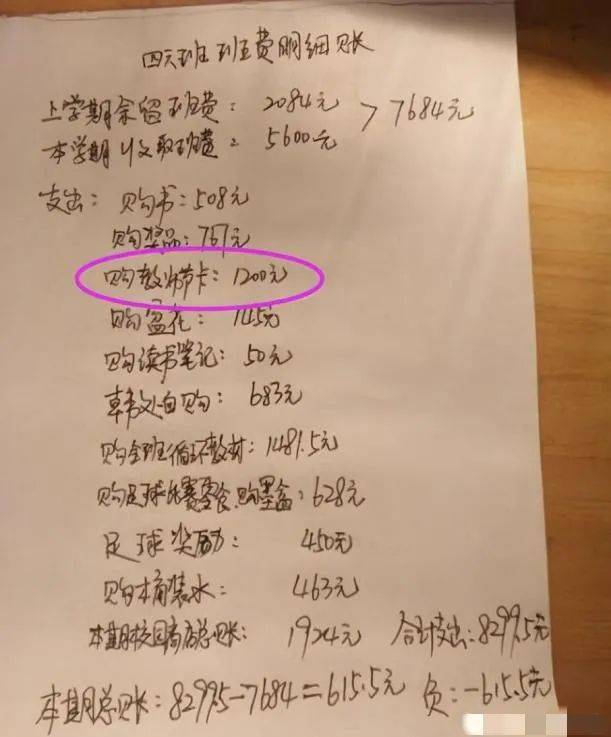 四六班班费明细账
上学期余留班费：2084元 > 7684元
本学期收取班费：5600元
支出：购书：508元
购奖品：767元
购教师节卡：1200元
购盆花：145元
购读书笔记：50元
自购：683元
购全班循环教材：1481.5元
购足球比赛零食、购墨盒：628元
足球奖励：450元
购桶装水：463元
本期校园商店总账：1924元 合计支出：8299.5元
本期总账：8299.5-7684=615.5元 负：-615.5元